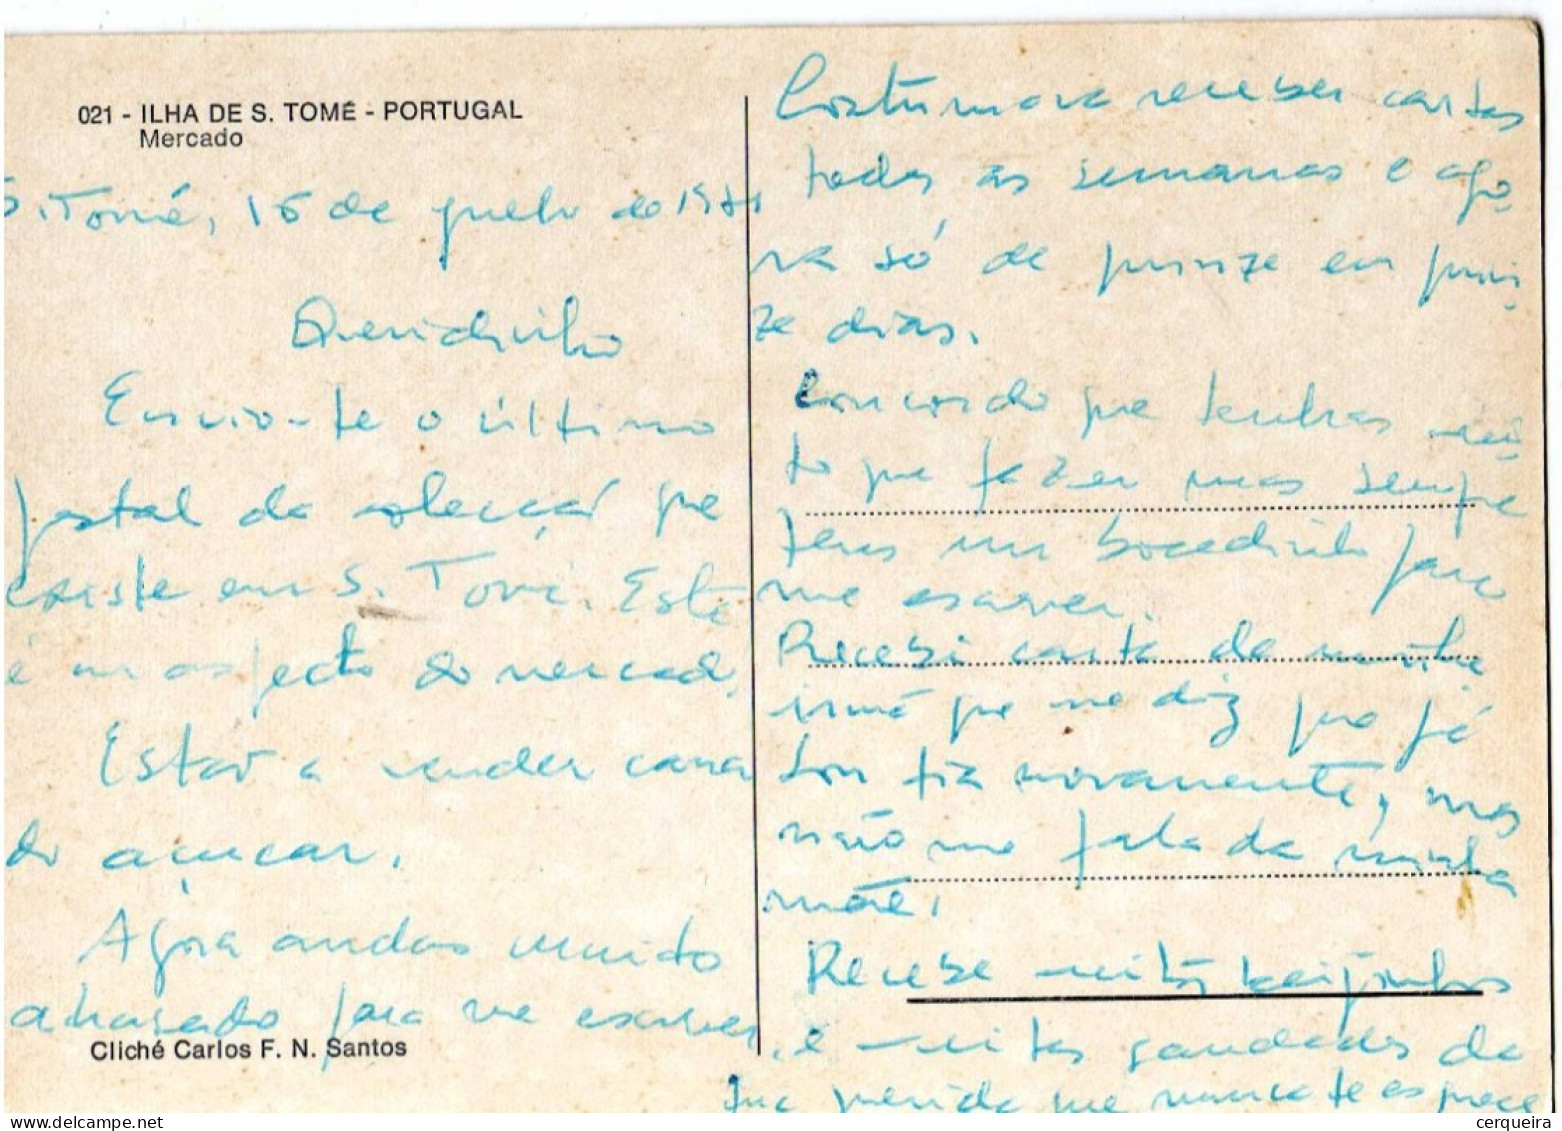 021 - ILHA DE S. TOMÉ - PORTUGAL
Mercado
S. Tomé, 15 de julho de 1971
Queridinho
Envio-te o último
postal da colecção que
existe em S. Tomé. Este
é um aspecto do mercado.
Estão a vender cana
do açucar.
Agora andas muito
atrasado para me escrever.
Cliché Carlos F. N. Santos
Costumava receber cartas
todas as semanas e ago-
ra só de quinze em quin-
ze dias.
Concordo que tenhas mui-
to que fazer mas sempre
tens um bocadinho para
me escrever.
Recebi carta da minha
irmã que me diz que já
sou tia novamente, mas
não me fala da minha
mãe.
Recebe muitos beijinhos
e muitas saudades da
tua querida que nunca te esquece
cerqueira